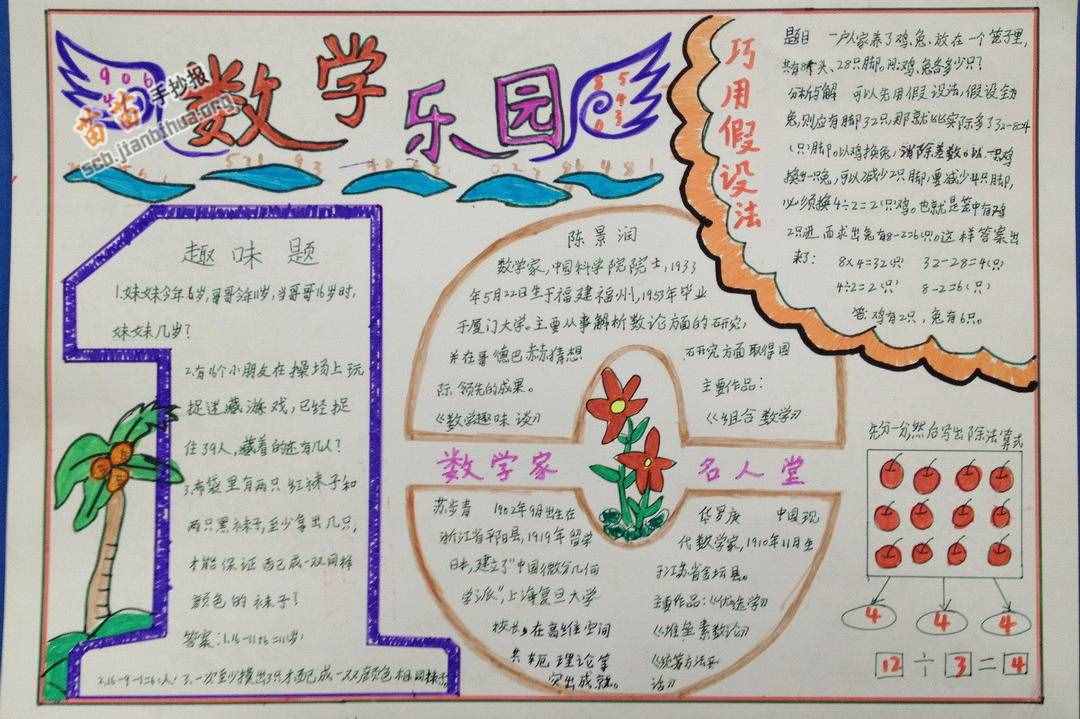 数学乐园
苗苗手抄报
scb.jianbihua.org
9 0 6
8 5
4
3
0
趣味题
1.妹妹今年6岁,哥哥今年11岁,当哥哥16岁时,
妹妹几岁?
2.有16个小朋友在操场上玩
捉迷藏游戏,已经捉
住了9人,藏着的还有几人?
3.布袋里有两只红袜子和
两只黑袜子,至少拿出几只,
才能保证配成一双同样
颜色的袜子?
答案:
3.一次至少摸出3只才配成一双颜色相同袜子。
陈景润
数学家,中国科学院院士,1933
年5月22日生于福建福州,1953年毕业
于厦门大学。主要从事解析数论方面的研究,
并在哥德巴赫猜想
研究方面取得国
际领先的成果。
主要作品:
《数学趣味谈》
《组合数学》
数学家
名人堂
苏步青 1902年9月出生在
浙江省平阳县,1919年留学
日本,建立了“中国微分几何
学派”,上海复旦大学
校长,在高维空间
共轭理论等
突出成就。
华罗庚 中国现
代数学家,1910年11月生
于江苏省金坛县。
主要作品:《优选学》
《堆垒素数论》
《统筹方法平
话》
巧用假设法
题目 一户人家养了鸡、兔、放在一个笼子里,
共有8个头、28只脚,问鸡、兔各多少只?
分析与解 可以先用假设法,假设全为
兔,则应有脚32只,那就比实际多了32-28=4
(只)脚。以鸡换兔,消除差数。以一只鸡
换一只兔,可以减少2只脚,要减少4只脚,
必须换4÷2=2(只)鸡。也就是笼中有鸡
2只,进而求出兔有8-2=6(只)。这样答案出
来了: 8×4=32(只) 32-28=4(只)
4÷2=2(只) 8-2=6(只)
答:鸡有2只,兔有6只。
先分一分,然后写出除法算式
4 4 4
12÷3=4